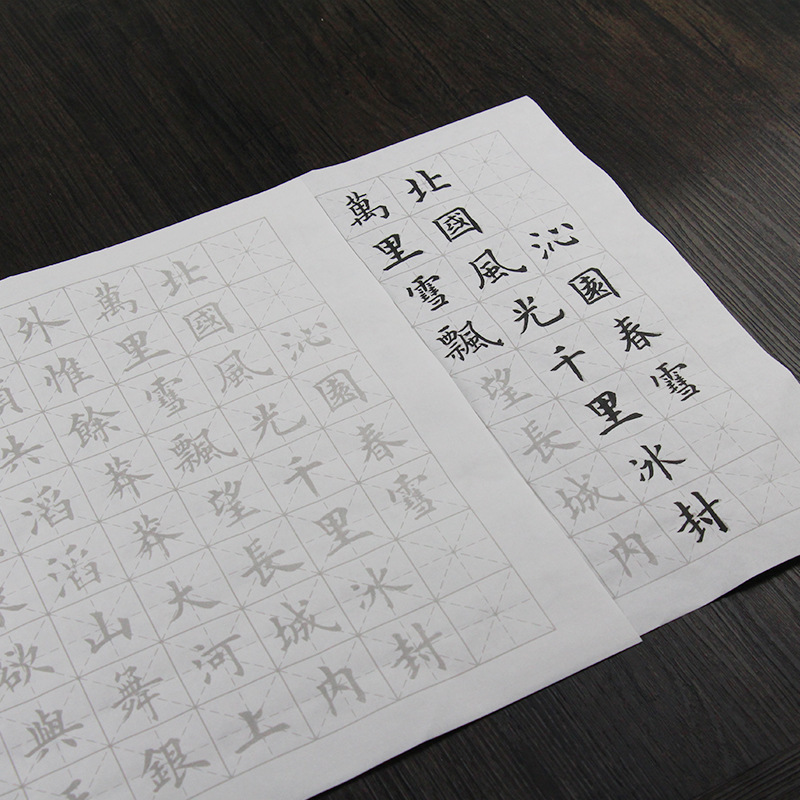 沁園春雪
北國風光千里冰封
萬里雪飄望長城内
沁園春雪
北國風光千里冰封
萬里雪飄望長城内
外惟餘莽莽大河上
失滔滔山舞銀
欲與